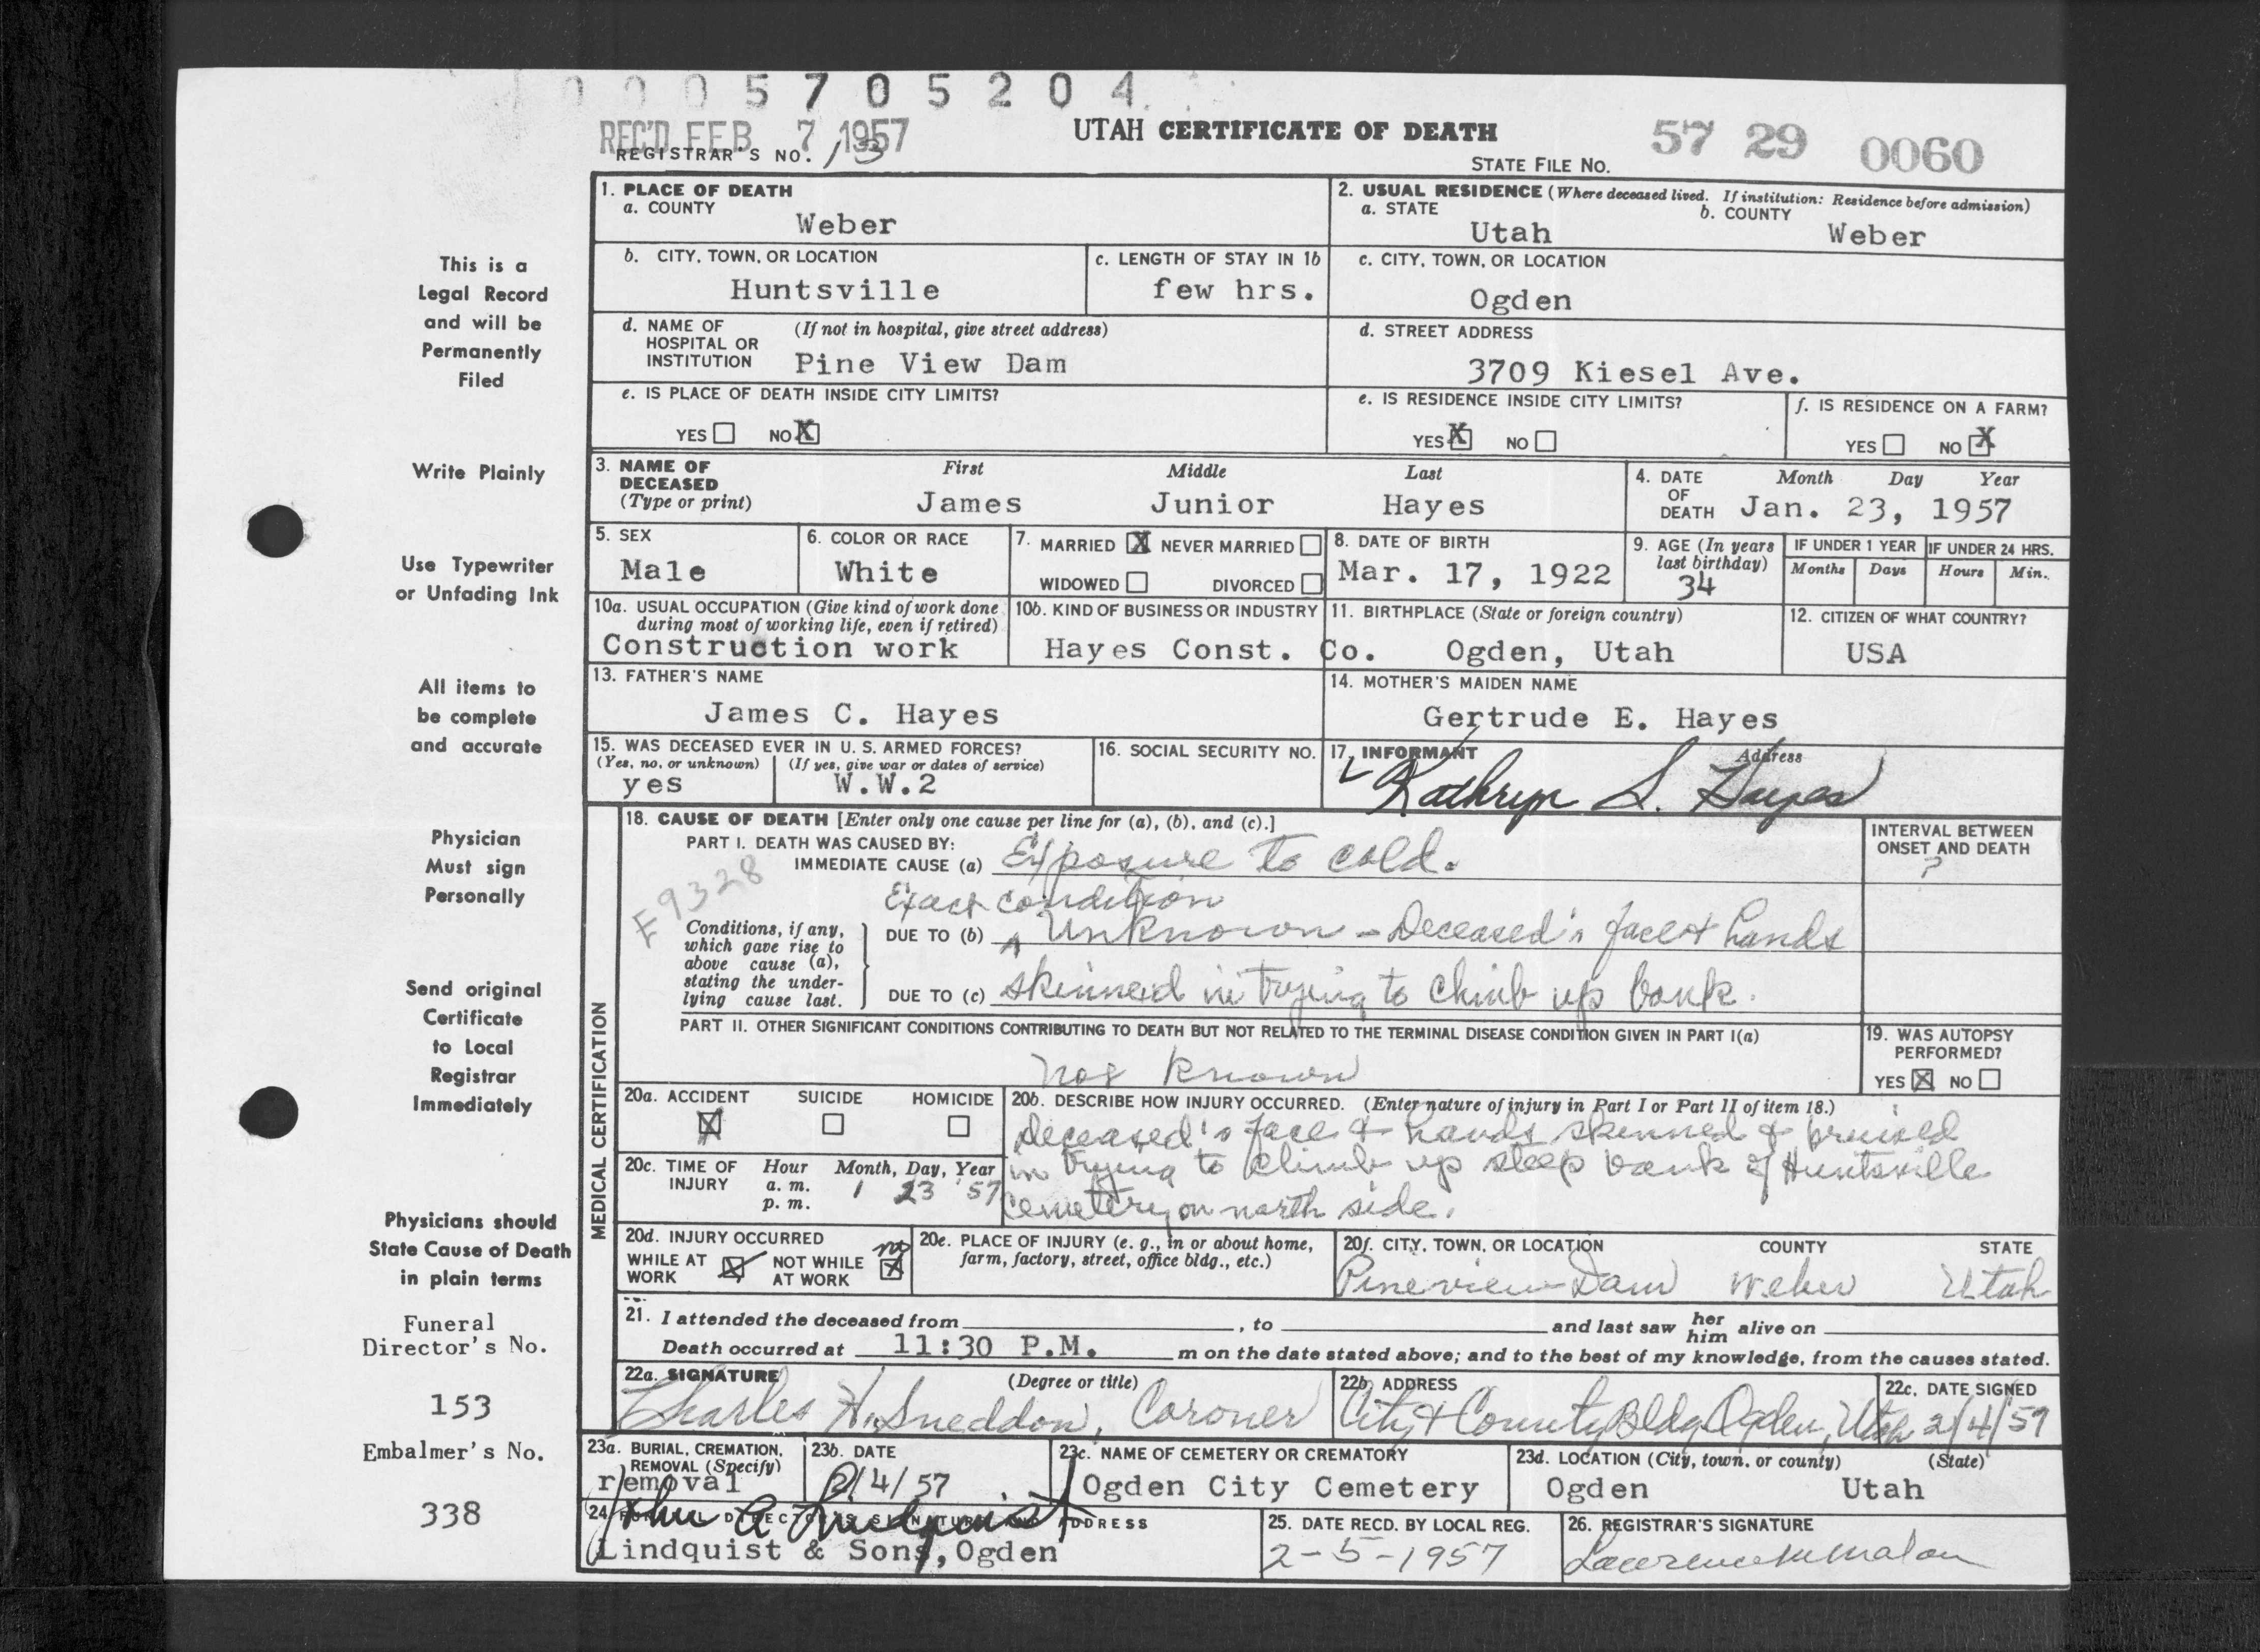 0005705204
REC'D FEB 7 1957
UTAH CERTIFICATE OF DEATH
57 29 0060
REGISTRAR'S NO. 13
STATE FILE NO.
1. PLACE OF DEATH
a. COUNTY
Weber
2. USUAL RESIDENCE (Where deceased lived. If institution: Residence before admission)
a. STATE
Utah
b. COUNTY
Weber
b. CITY, TOWN, OR LOCATION
Huntsville
c. LENGTH OF STAY IN 1b
few hrs.
c. CITY, TOWN, OR LOCATION
Ogden
d. NAME OF HOSPITAL OR INSTITUTION
(If not in hospital, give street address)
Pine View Dam
d. STREET ADDRESS
3709 Kiesel Ave.
e. IS PLACE OF DEATH INSIDE CITY LIMITS?
YES NO X
e. IS RESIDENCE INSIDE CITY LIMITS?
YES X NO
f. IS RESIDENCE ON A FARM?
YES NO X
3. NAME OF DECEASED
(Type or print)
First Middle Last
James Junior Hayes
4. DATE OF DEATH
Month Day Year
Jan. 23, 1957
5. SEX
Male
6. COLOR OR RACE
White
7. MARRIED X NEVER MARRIED
WIDOWED DIVORCED
8. DATE OF BIRTH
Mar. 17, 1922
9. AGE (In years last birthday)
34
IF UNDER 1 YEAR
Months Days
IF UNDER 24 HRS.
Hours Min.
10a. USUAL OCCUPATION (Give kind of work done during most of working life, even if retired)
Construction work
10b. KIND OF BUSINESS OR INDUSTRY
Hayes Const. Co.
11. BIRTHPLACE (State or foreign country)
Ogden, Utah
12. CITIZEN OF WHAT COUNTRY?
USA
13. FATHER'S NAME
James C. Hayes
14. MOTHER'S MAIDEN NAME
Gertrude E. Hayes
15. WAS DECEASED EVER IN U. S. ARMED FORCES?
(Yes, no, or unknown) (If yes, give war or dates of service)
yes W.W.2
16. SOCIAL SECURITY NO.
17. INFORMANT Address
Kathryn S. Hayes
MEDICAL CERTIFICATION
18. CAUSE OF DEATH [Enter only one cause per line for (a), (b), and (c).]
INTERVAL BETWEEN ONSET AND DEATH
?
PART I. DEATH WAS CAUSED BY:
IMMEDIATE CAUSE (a) Exposure to cold.
E9328
Exact condition
Conditions, if any, which gave rise to above cause (a), stating the underlying cause last.
DUE TO (b) Unknown - Deceased's face & hands
DUE TO (c) skinned in trying to climb up bank.
PART II. OTHER SIGNIFICANT CONDITIONS CONTRIBUTING TO DEATH BUT NOT RELATED TO THE TERMINAL DISEASE CONDITION GIVEN IN PART I(a)
Not known
19. WAS AUTOPSY PERFORMED?
YES X NO
20a. ACCIDENT SUICIDE HOMICIDE
X
20b. DESCRIBE HOW INJURY OCCURRED. (Enter nature of injury in Part I or Part II of item 18.)
Deceased's face & hands skinned & bruised
in trying to climb up steep bank of Huntsville
cemetery on north side.
20c. TIME OF INJURY
Hour Month, Day, Year
a. m.
p. m.
1 23 '57
20d. INJURY OCCURRED
WHILE AT WORK X NOT WHILE AT WORK X
no
20e. PLACE OF INJURY (e. g., in or about home, farm, factory, street, office bldg., etc.)
20f. CITY, TOWN, OR LOCATION COUNTY STATE
Pineview Dam Weber Utah
21. I attended the deceased from , to and last saw her him alive on
Death occurred at 11:30 P.M. m on the date stated above; and to the best of my knowledge, from the causes stated.
22a. SIGNATURE (Degree or title)
Charles H. Sneddon, Coroner
22b. ADDRESS
City & County Bldg. Ogden, Utah
22c. DATE SIGNED
2/4/57
23a. BURIAL, CREMATION, REMOVAL (Specify)
removal
23b. DATE
2/4/57
23c. NAME OF CEMETERY OR CREMATORY
Ogden City Cemetery
23d. LOCATION (City, town, or county) (State)
Ogden Utah
24. FUNERAL DIRECTOR'S SIGNATURE AND ADDRESS
John A Lindquist
Lindquist & Sons, Ogden
25. DATE RECD. BY LOCAL REG.
2-5-1957
26. REGISTRAR'S SIGNATURE
Lawrence M Malan
This is a
Legal Record
and will be
Permanently
Filed
Write Plainly
Use Typewriter
or Unfading Ink
All items to
be complete
and accurate
Physician
Must sign
Personally
Send original
Certificate
to Local
Registrar
Immediately
Physicians should
State Cause of Death
in plain terms
Funeral
Director's No.
153
Embalmer's No.
338